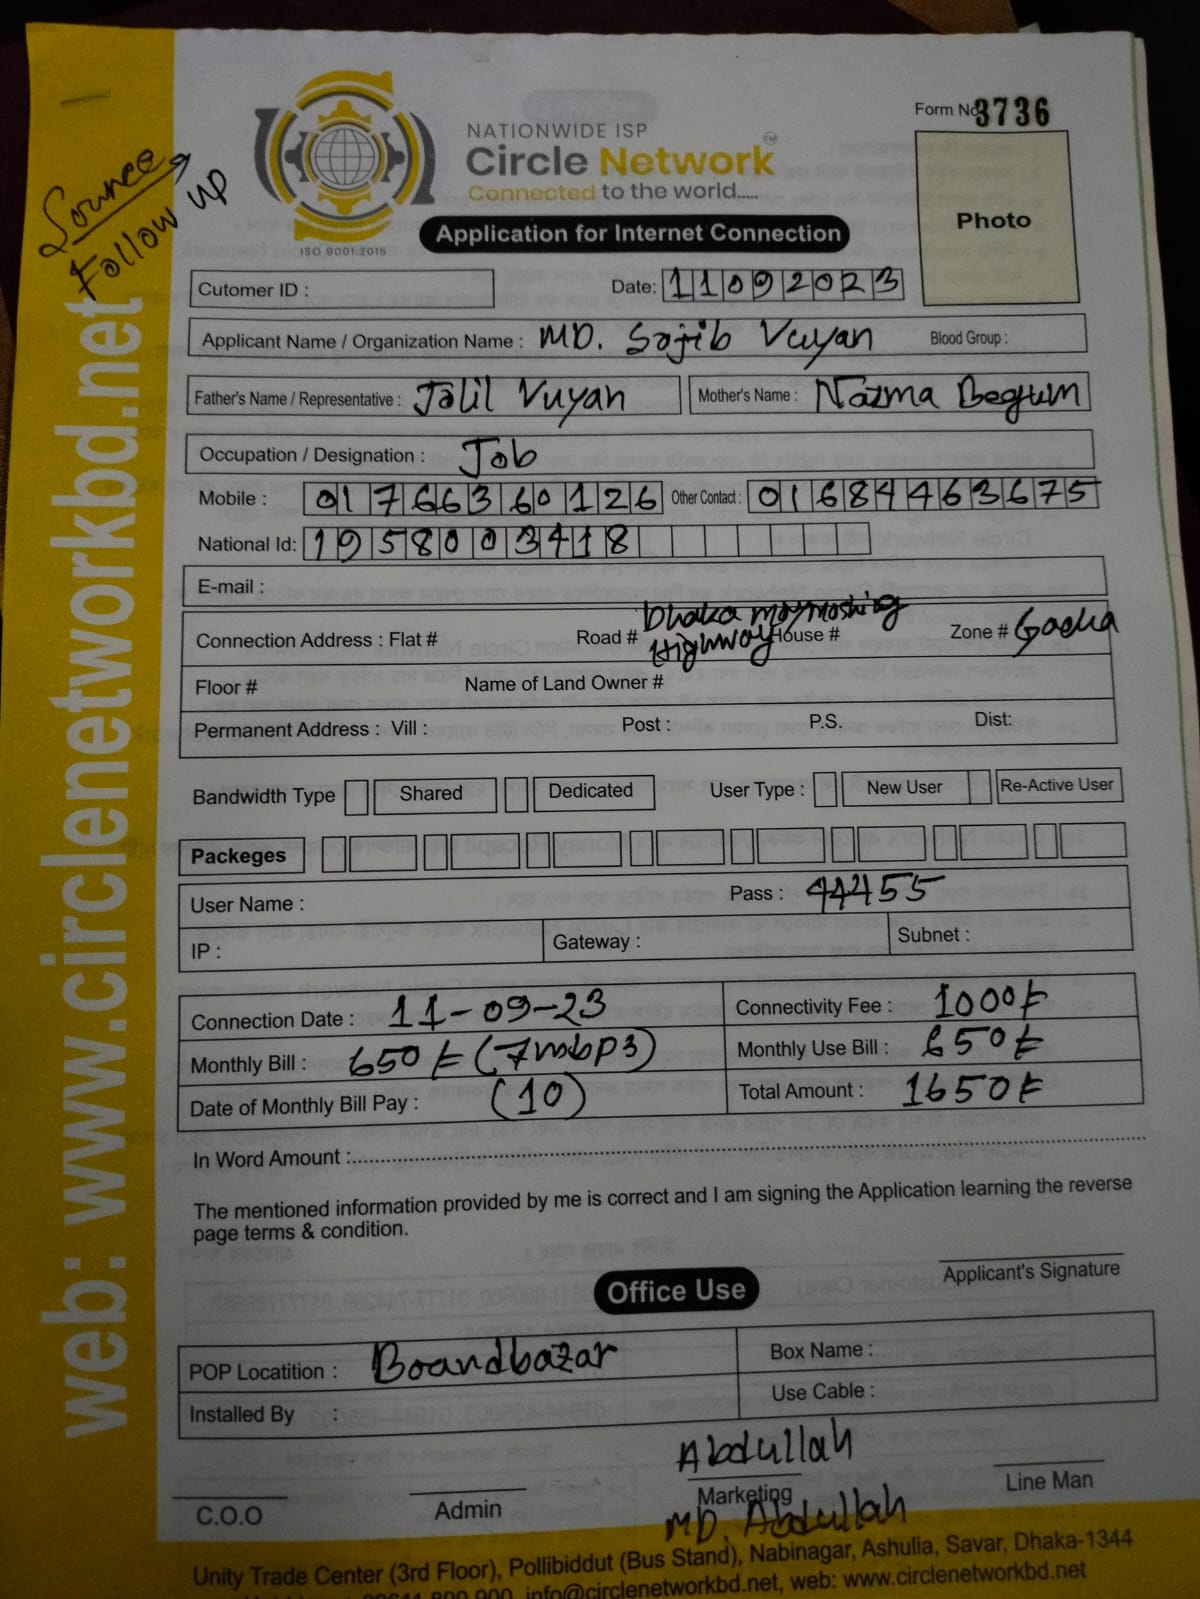 Source → Follow UP
NATIONWIDE ISP
Circle Network™
Connected to the world.....
ISO 9001:2015
Application for Internet Connection
Form No 3736
Photo
Cutomer ID :
Date: 11092023
Applicant Name / Organization Name : MD. Sajib Vuyan Blood Group :
Father's Name / Representative : Jalil Vuyan Mother's Name : Nazma Begum
Occupation / Designation : Job
Mobile : 01766360126 Other Contact : 01684463675
National Id: 1958003418
E-mail :
Connection Address : Flat # Road # Dhaka Moymoshing Highway House # Zone # Gacha
Floor # Name of Land Owner #
Permanent Address : Vill : Post : P.S. Dist:
Bandwidth Type Shared Dedicated User Type : New User Re-Active User
Packeges
User Name : Pass : 44455
IP : Gateway : Subnet :
Connection Date : 11-09-23 Connectivity Fee : 1000৳
Monthly Bill : 650৳ (7mbps) Monthly Use Bill : 650৳
Date of Monthly Bill Pay : (10) Total Amount : 1650৳
In Word Amount :
The mentioned information provided by me is correct and I am signing the Application learning the reverse
page terms & condition.
Applicant's Signature
Office Use
POP Locatition : Boardbazar Box Name :
Installed By : Use Cable :
Abdullah
C.O.O Admin Marketing Line Man
MD. Abdullah
Unity Trade Center (3rd Floor), Pollibiddut (Bus Stand), Nabinagar, Ashulia, Savar, Dhaka-1344
info@circlenetworkbd.net, web: www.circlenetworkbd.net
web: www.circlenetworkbd.net